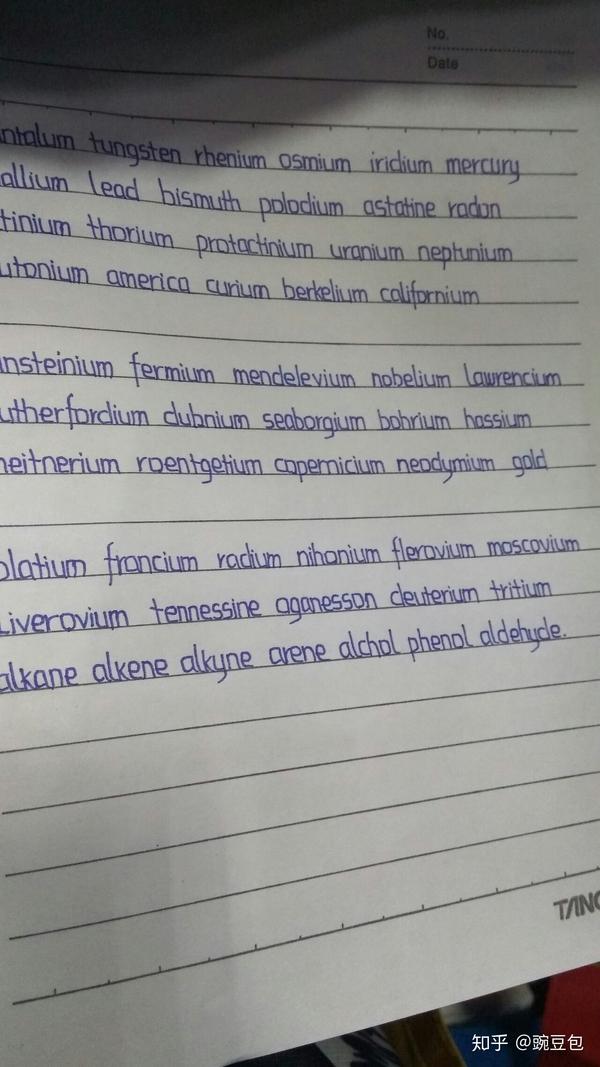 No.
Date
ntalum tungsten rhenium osmium iridium mercury
allium lead bismuth polodium astatine radon
tinium thorium protactinium uranium neptunium
utonium america curium berkelium californium
nsteinium fermium mendelevium nobelium lawrencium
utherfordium dubnium seaborgium bohrium hassium
neitnerium roentgetium copernicium neodymium gold
olatium francium radium nihonium flerovium moscovium
Liverovium tennessine oganesson deuterium tritium
alkane alkene alkyne arene alchol phenol aldehyde.
TANG
知乎 @豌豆包